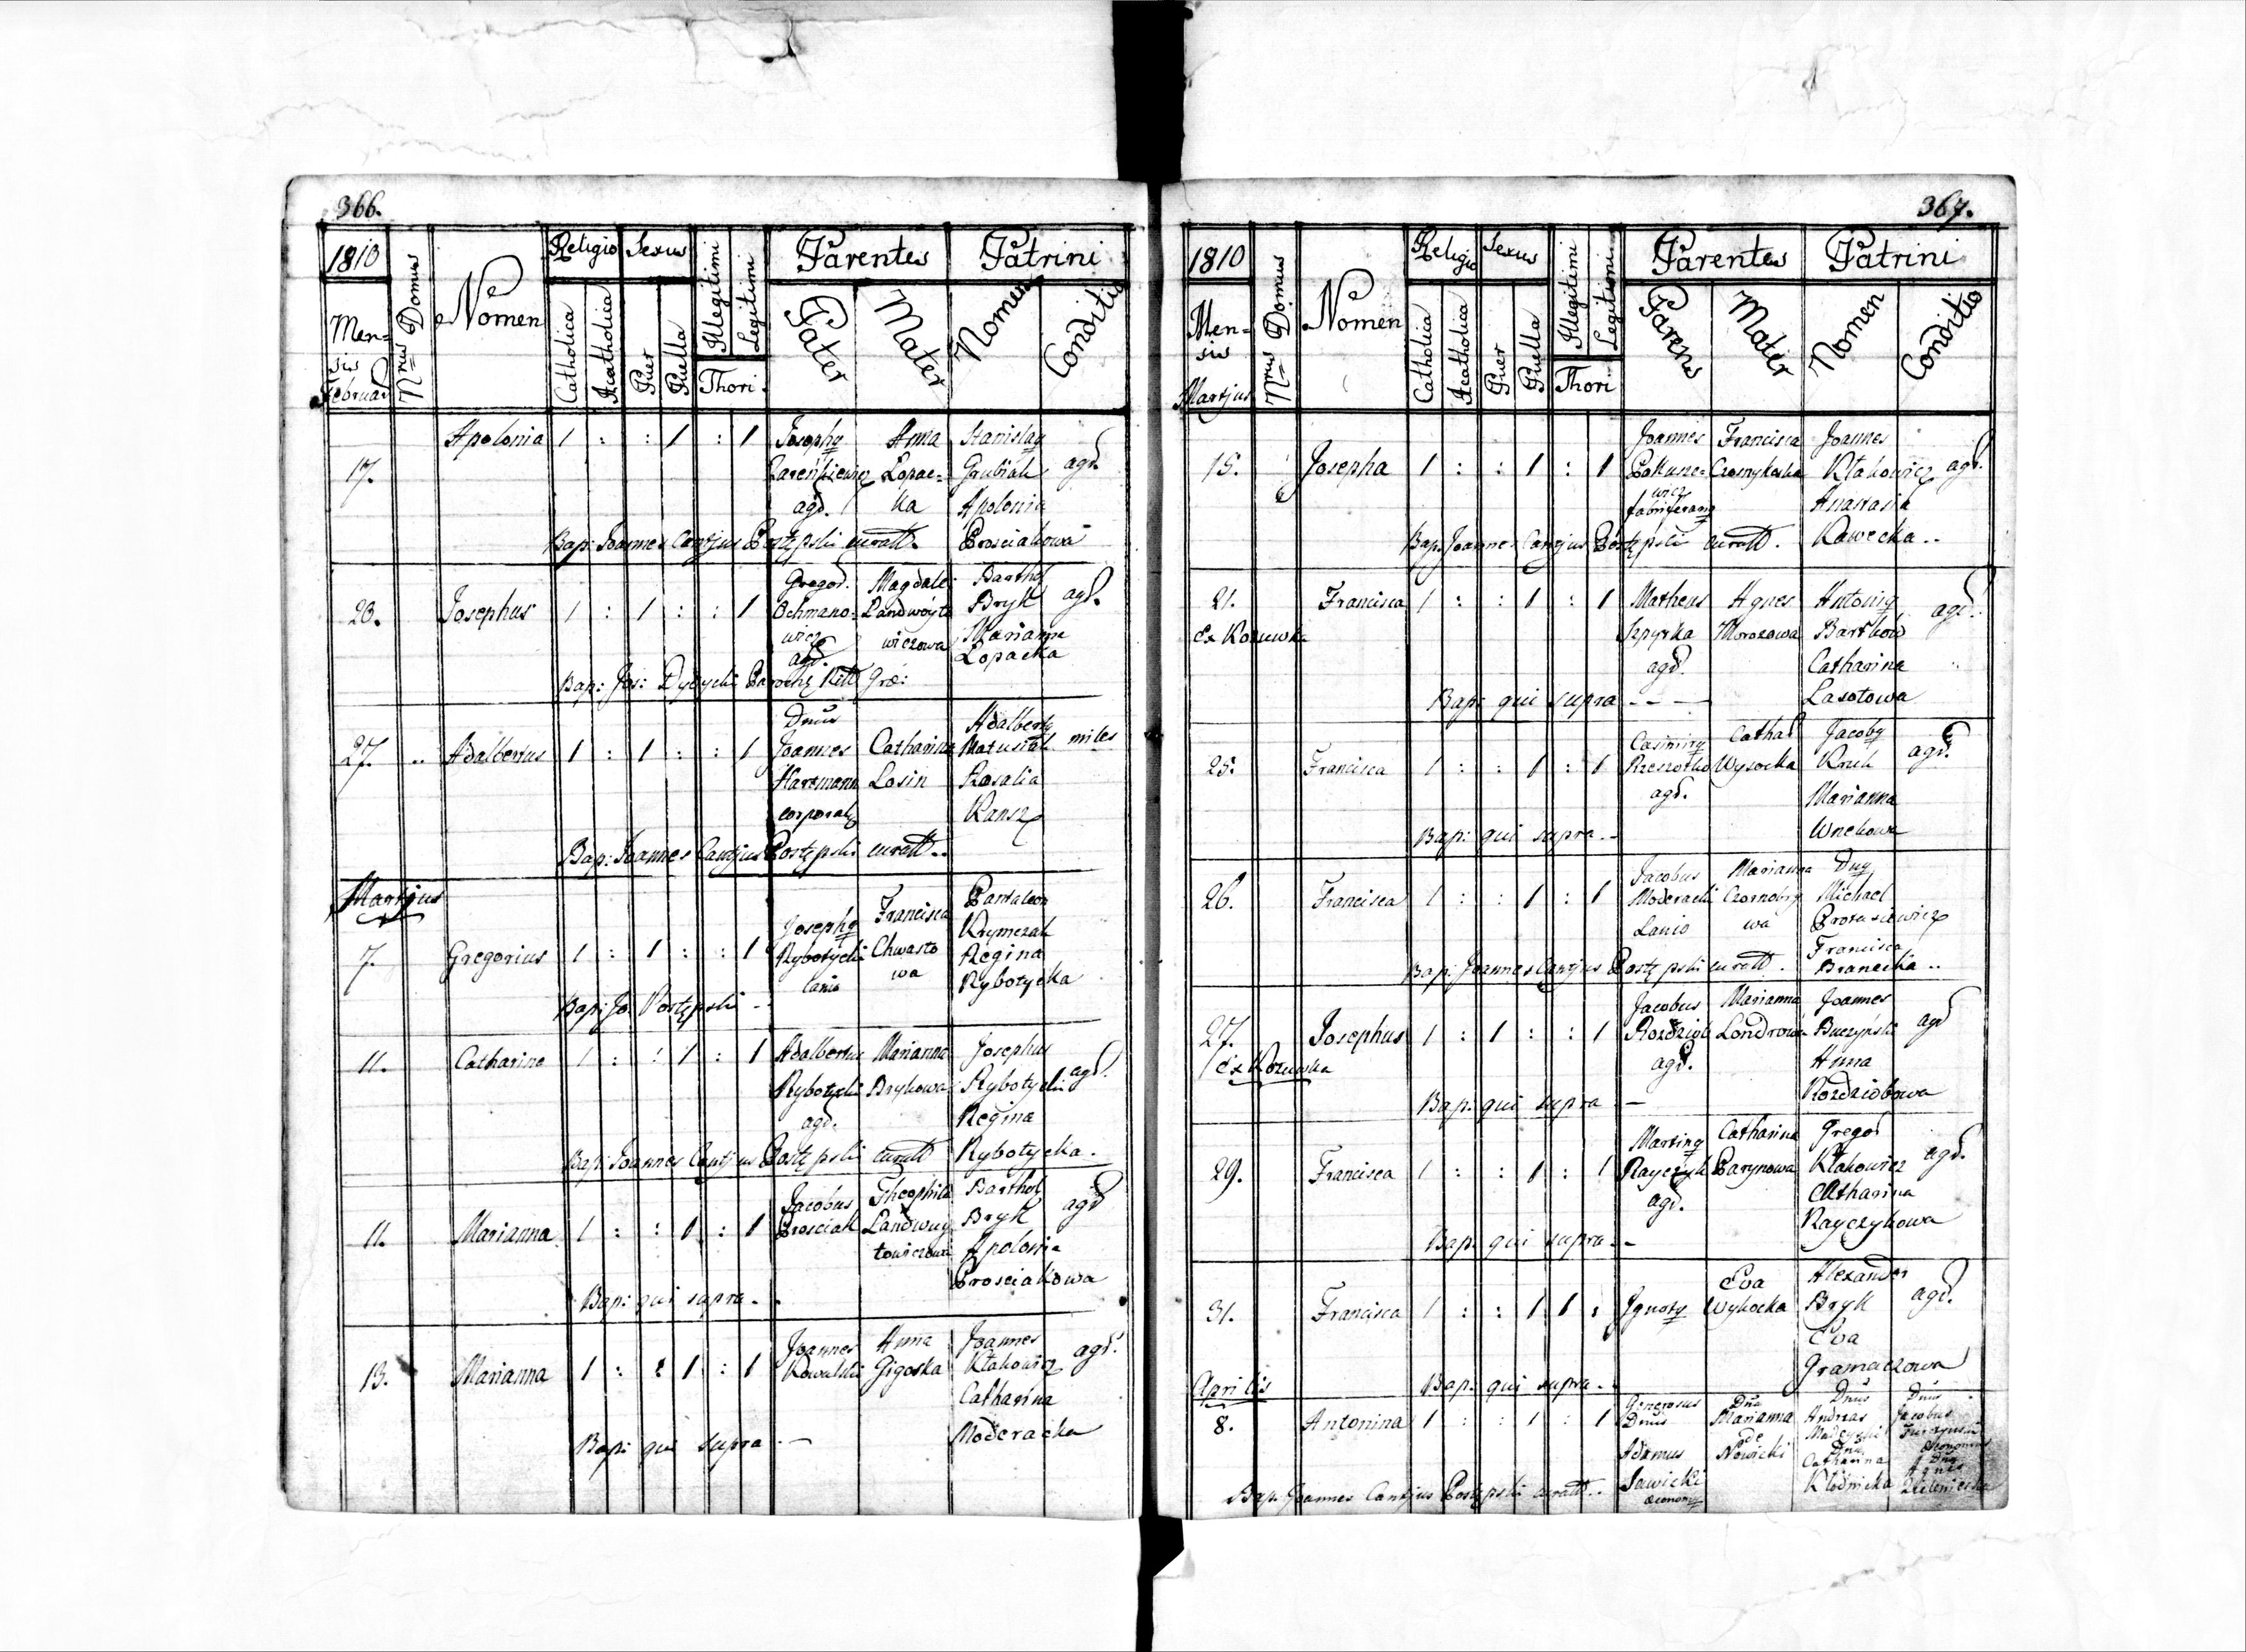 366.
1810
Mensis
Februar
Nrus Domus
Nomen
Religio
Catholica
Acatholica
Sexus
Puer
Puella
Illegitimi
Legitimi
Thori
Parentes
Pater
Mater
Patrini
Nomen
Conditio
17.
Apolonia 1 : : 1 : 1
Josephq
agr.
Anna
Lopac=
ka
Stanislaq
Grubiak
Apolonia
Prosciakowa
agr.
Bap: Joannes Cantjus Postępski curatt.
23.
Josephus 1 : 1 : : 1
Gregor.
Ochmano=
wicz
agr.
Magdale:
Landwoyto
wiczowa
Barthol
Bryk
Marianna
Lopacka
agr.
Bap: Jos: Dydycki Parochq Ritt Græ:
27. .. Adalbertus 1 : 1 : : 1
Dnus
Joannes
Hartmann
corporalq
Catharina
Losin
Adalbertq
Matusiak
Rosalia
miles
Bap: Joannes Cantjus Postępski curatt..
Martjus
7.
Gregorius 1 : 1 : : 1
Josephq
Rybotycki
lanio
Francisca
Chwasto
wa
Pantaleon
Krymczak
Regina
Rybotycka
Bap: Jo: Postępski -
11.
Catharina 1 : : 1 : 1
Adalbertus
Rybotycki
agr.
Marianna
Brykowa
Josephus
Rybotycki
Regina
Rybotycka.
agr.
Bap: Joannes Cantjus Postępski curatt
11.
Marianna 1 : : 1 : 1
Jacobus
Prosciak
Theophila
Landwuy
towiczowa
Barthol
Bryk
Apolonia
Prosciakowa
agr
Bap: qui supra.
13.
Marianna 1 : : 1 : 1
Joannes
Kowalski
Anna
Gigoska
Joannes
Kłakowicz
Catharina
Moderacka
agr.
Bap: qui supra . —
367.
1810
Mensis
Martjus
Nrus Domus
Nomen
Religio
Catholica
Acatholica
Sexus
Puer
Puella
Illegitimi
Legitimi
Thori
Parentes
Parens
Mater
Patrini
Nomen
Conditio
15.
Josepha 1 : : 1 : 1
Joannes
Pakusze=
wicz
Francisca
Czornykoska
Joannes
Kłakowicz
Anastasia
Kawecka ..
agr.
Bap: Joannes Cantjus Postępski curatt.
21.
Ex Kozuwka
Francisca 1 : : 1 : 1
Matheus
Szpyrka
agr.
Agnes
Morozowa
Antoniq
Bartkow
Catharina
Lasotowa
agr.
Bap: qui supra - - —
25.
Francisca 1 : : 1 : 1
Casimirq
Rzeszotko
agr.
Cathar
Wysocka
Jacobq
Knih
Marianna
Wnekowa
agr.
Bap: qui supra. -
26.
Francisca 1 : : 1 : 1
Jacobus
Moderacki
Lanio
Marianna
Czornobry
wa
Dnq
Michael
Protasiewicz
Francisca
Branecka ..
Bap: Joannes Cantjus Postępski curatt.
27.
Ex Kozuwka
Josephus 1 : 1 : : 1
Jacobus
Rozdziob
agr.
Marianna
Londrowa
Joannes
Buczyński
Anna
Rozdziobowa
agr
Bap: qui supra —
29.
Francisca 1 : : 1 : 1
Martinq
Rayczyk
agr.
Catharina
Parynowa
Gregor
Kłakowicz
Catharina
Rayczykowa
agr.
Bap: qui supra. -
31.
Francisca 1 : : 1 1 :
Ignotq
Eva
Wysocka
Alexander
Bryk
Eva
Gramaczowa
agr.
Bap: qui supra. -
Aprilis
8.
Antonina 1 : : 1 : 1
Generosus
Dnus
Adamus
Sawicki
œconomq
Dna
Marianna
de
Nowicki
Dnus
Andreas
Dna
Catharina
Kłodnicka
Dnus
Jacobus
œconomus
Dna
Agnes
Zieleniecka
Bap: Joannes Cantjus Postępski curatt..